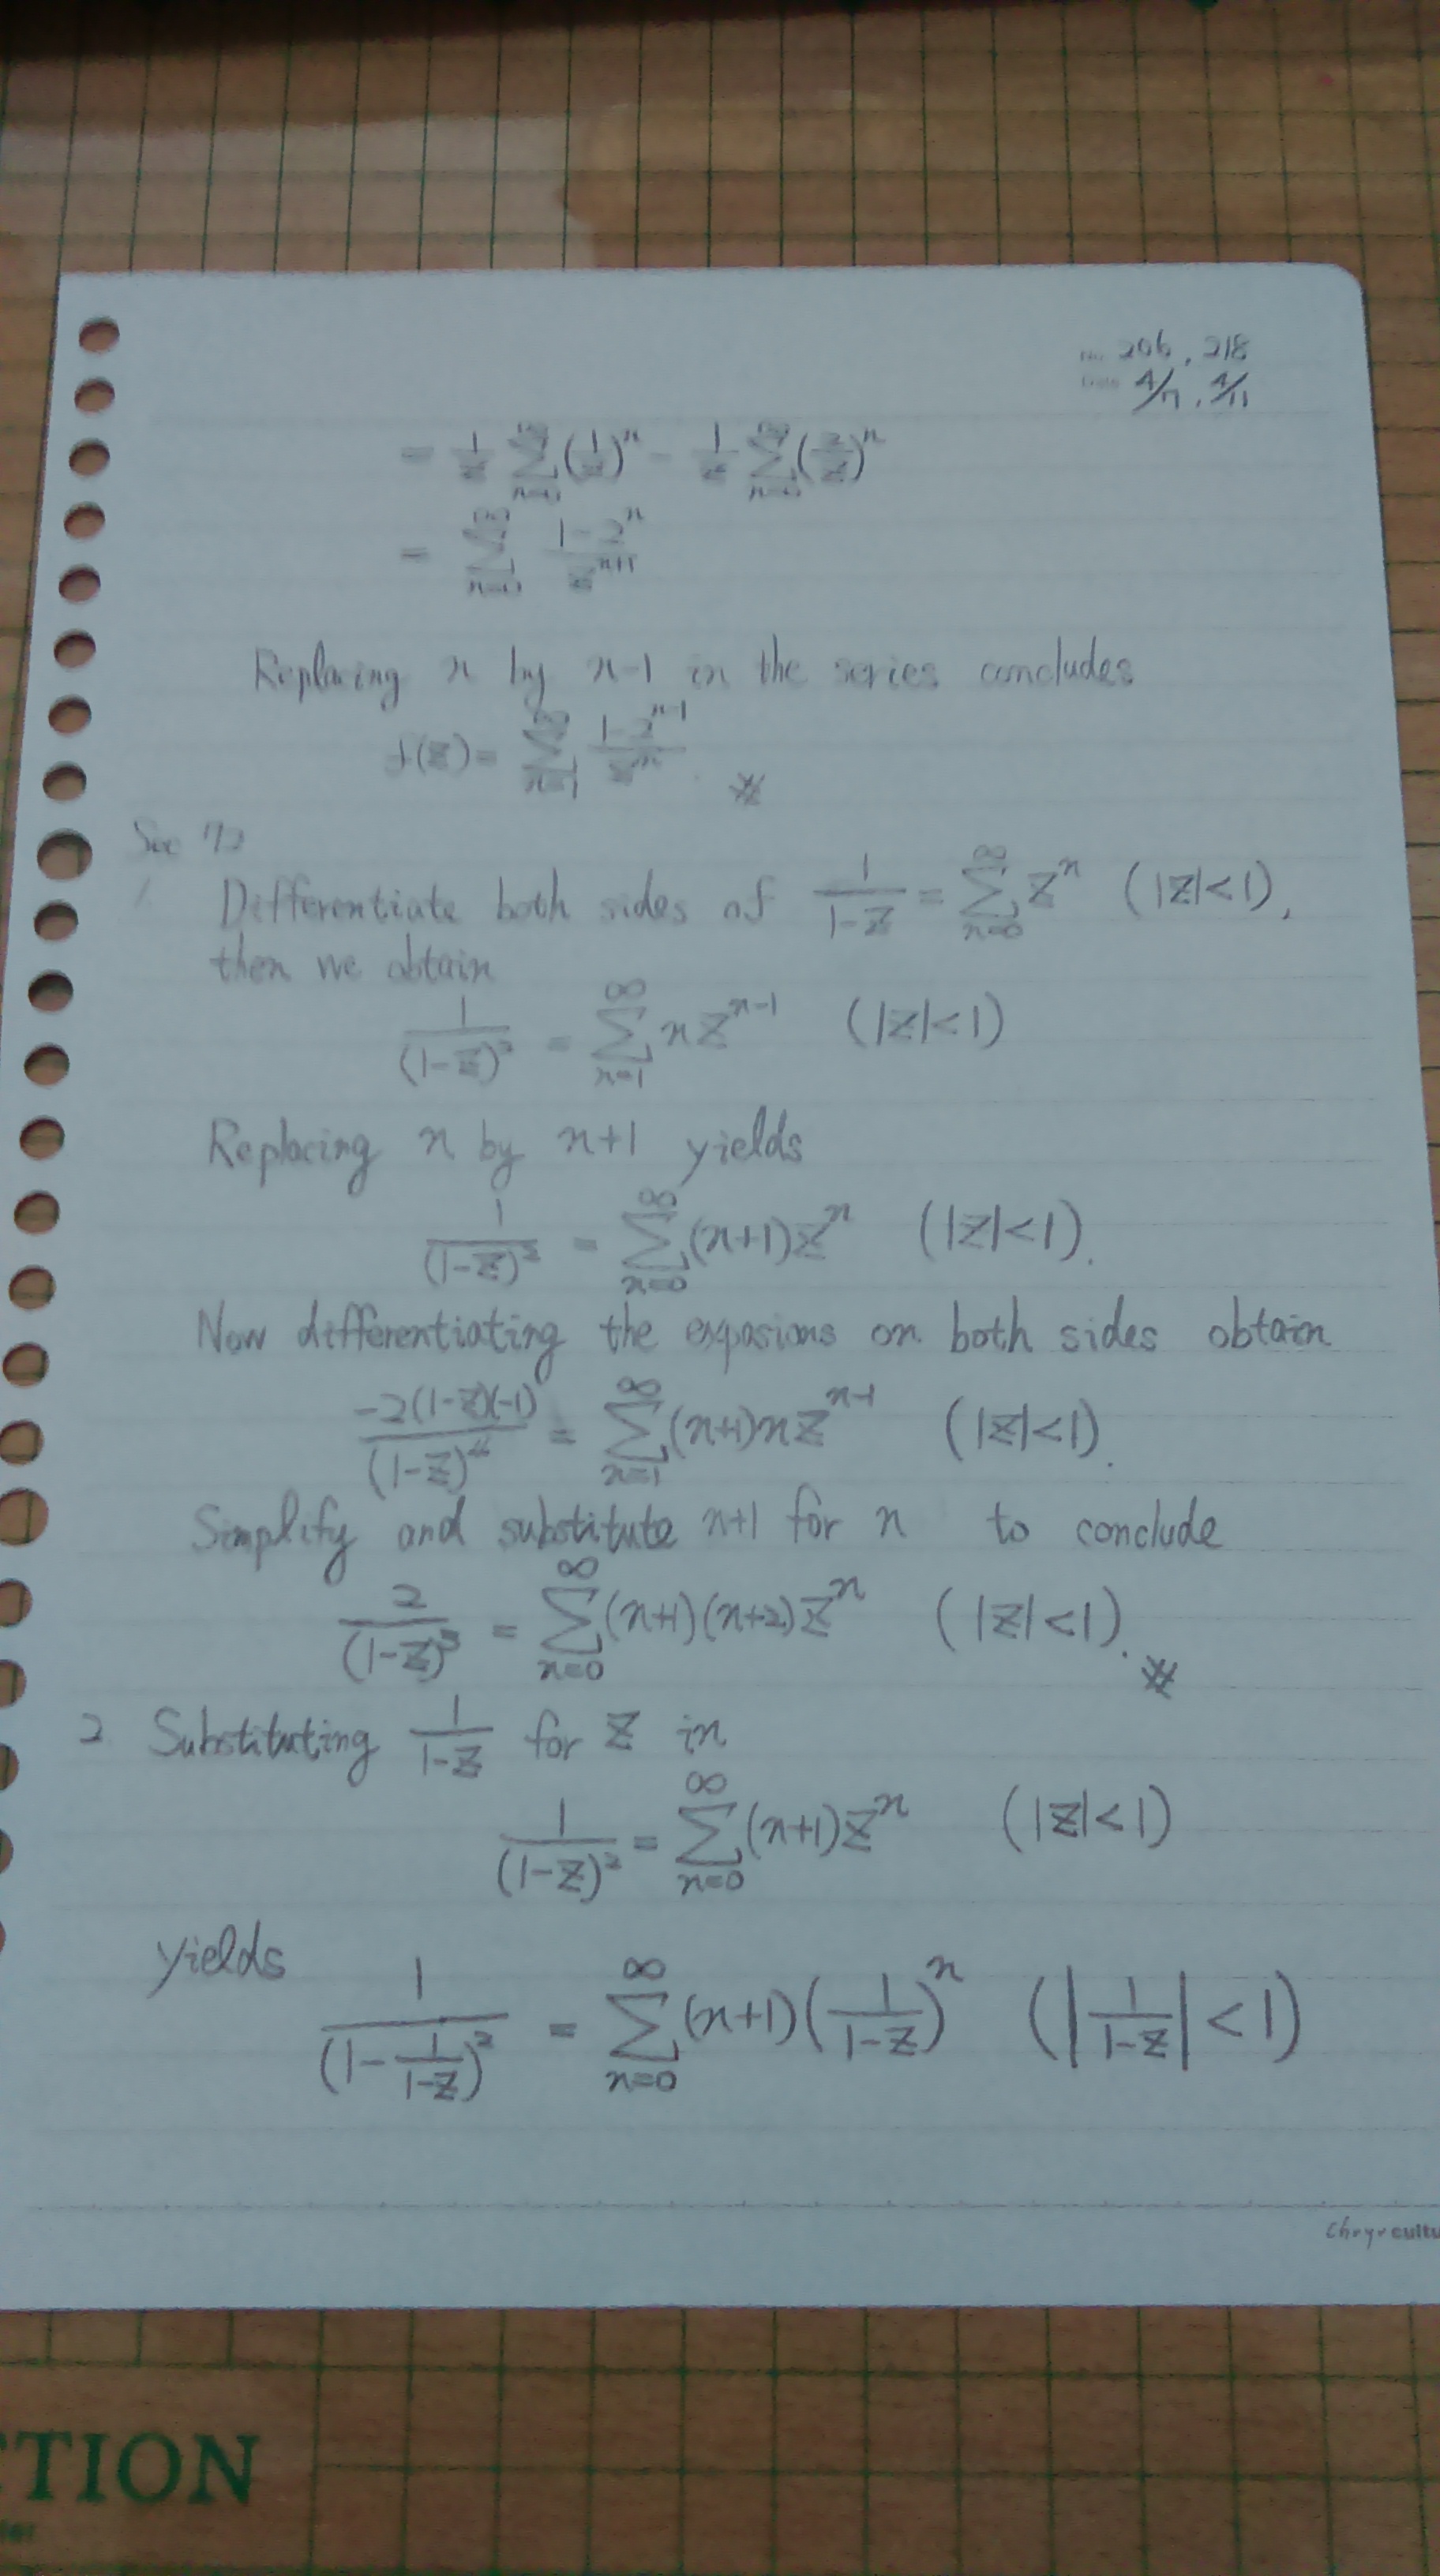 No. 206, 218
Date 4/7, 4/11
= 1/z ∑_{n=0}^{∞} (1/z)^n - 1/z ∑_{n=0}^{∞} (2/z)^n
= ∑_{n=0}^{∞} (1-2^n)/z^{n+1}
Replacing n by n-1 in the series concludes
f(z) = ∑_{n=1}^{∞} (1-2^{n-1})/z^n. ※
Sec 72
1. Differentiate both sides of 1/(1-z) = ∑_{n=0}^{∞} z^n (|z|<1),
then we obtain
1/(1-z)^2 = ∑_{n=1}^{∞} n z^{n-1} (|z|<1)
Replacing n by n+1 yields
1/(1-z)^2 = ∑_{n=0}^{∞} (n+1)z^n (|z|<1).
Now differentiating the expasions on both sides obtain
-2(1-z)(-1)/(1-z)^4 = ∑_{n=1}^{∞} (n+1)n z^{n-1} (|z|<1).
Simplify and substitute n+1 for n to conclude
2/(1-z)^3 = ∑_{n=0}^{∞} (n+1)(n+2)z^n (|z|<1). ※
2. Substituting 1/(1-z) for z in
1/(1-z)^2 = ∑_{n=0}^{∞} (n+1)z^n (|z|<1)
yields 1/(1-1/(1-z))^2 = ∑_{n=0}^{∞} (n+1)(1/(1-z))^n (|1/(1-z)|<1)
CTION